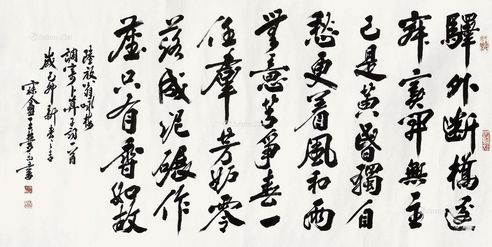 驛外斷橋邊
寂寞開無主
已是黃昏獨自
愁更着風和雨
無意苦爭春一
任羣芳妒零
落成泥碾作
塵只有香如故
陸放翁咏梅
調寄卜算子詞一首
歲己卯新春